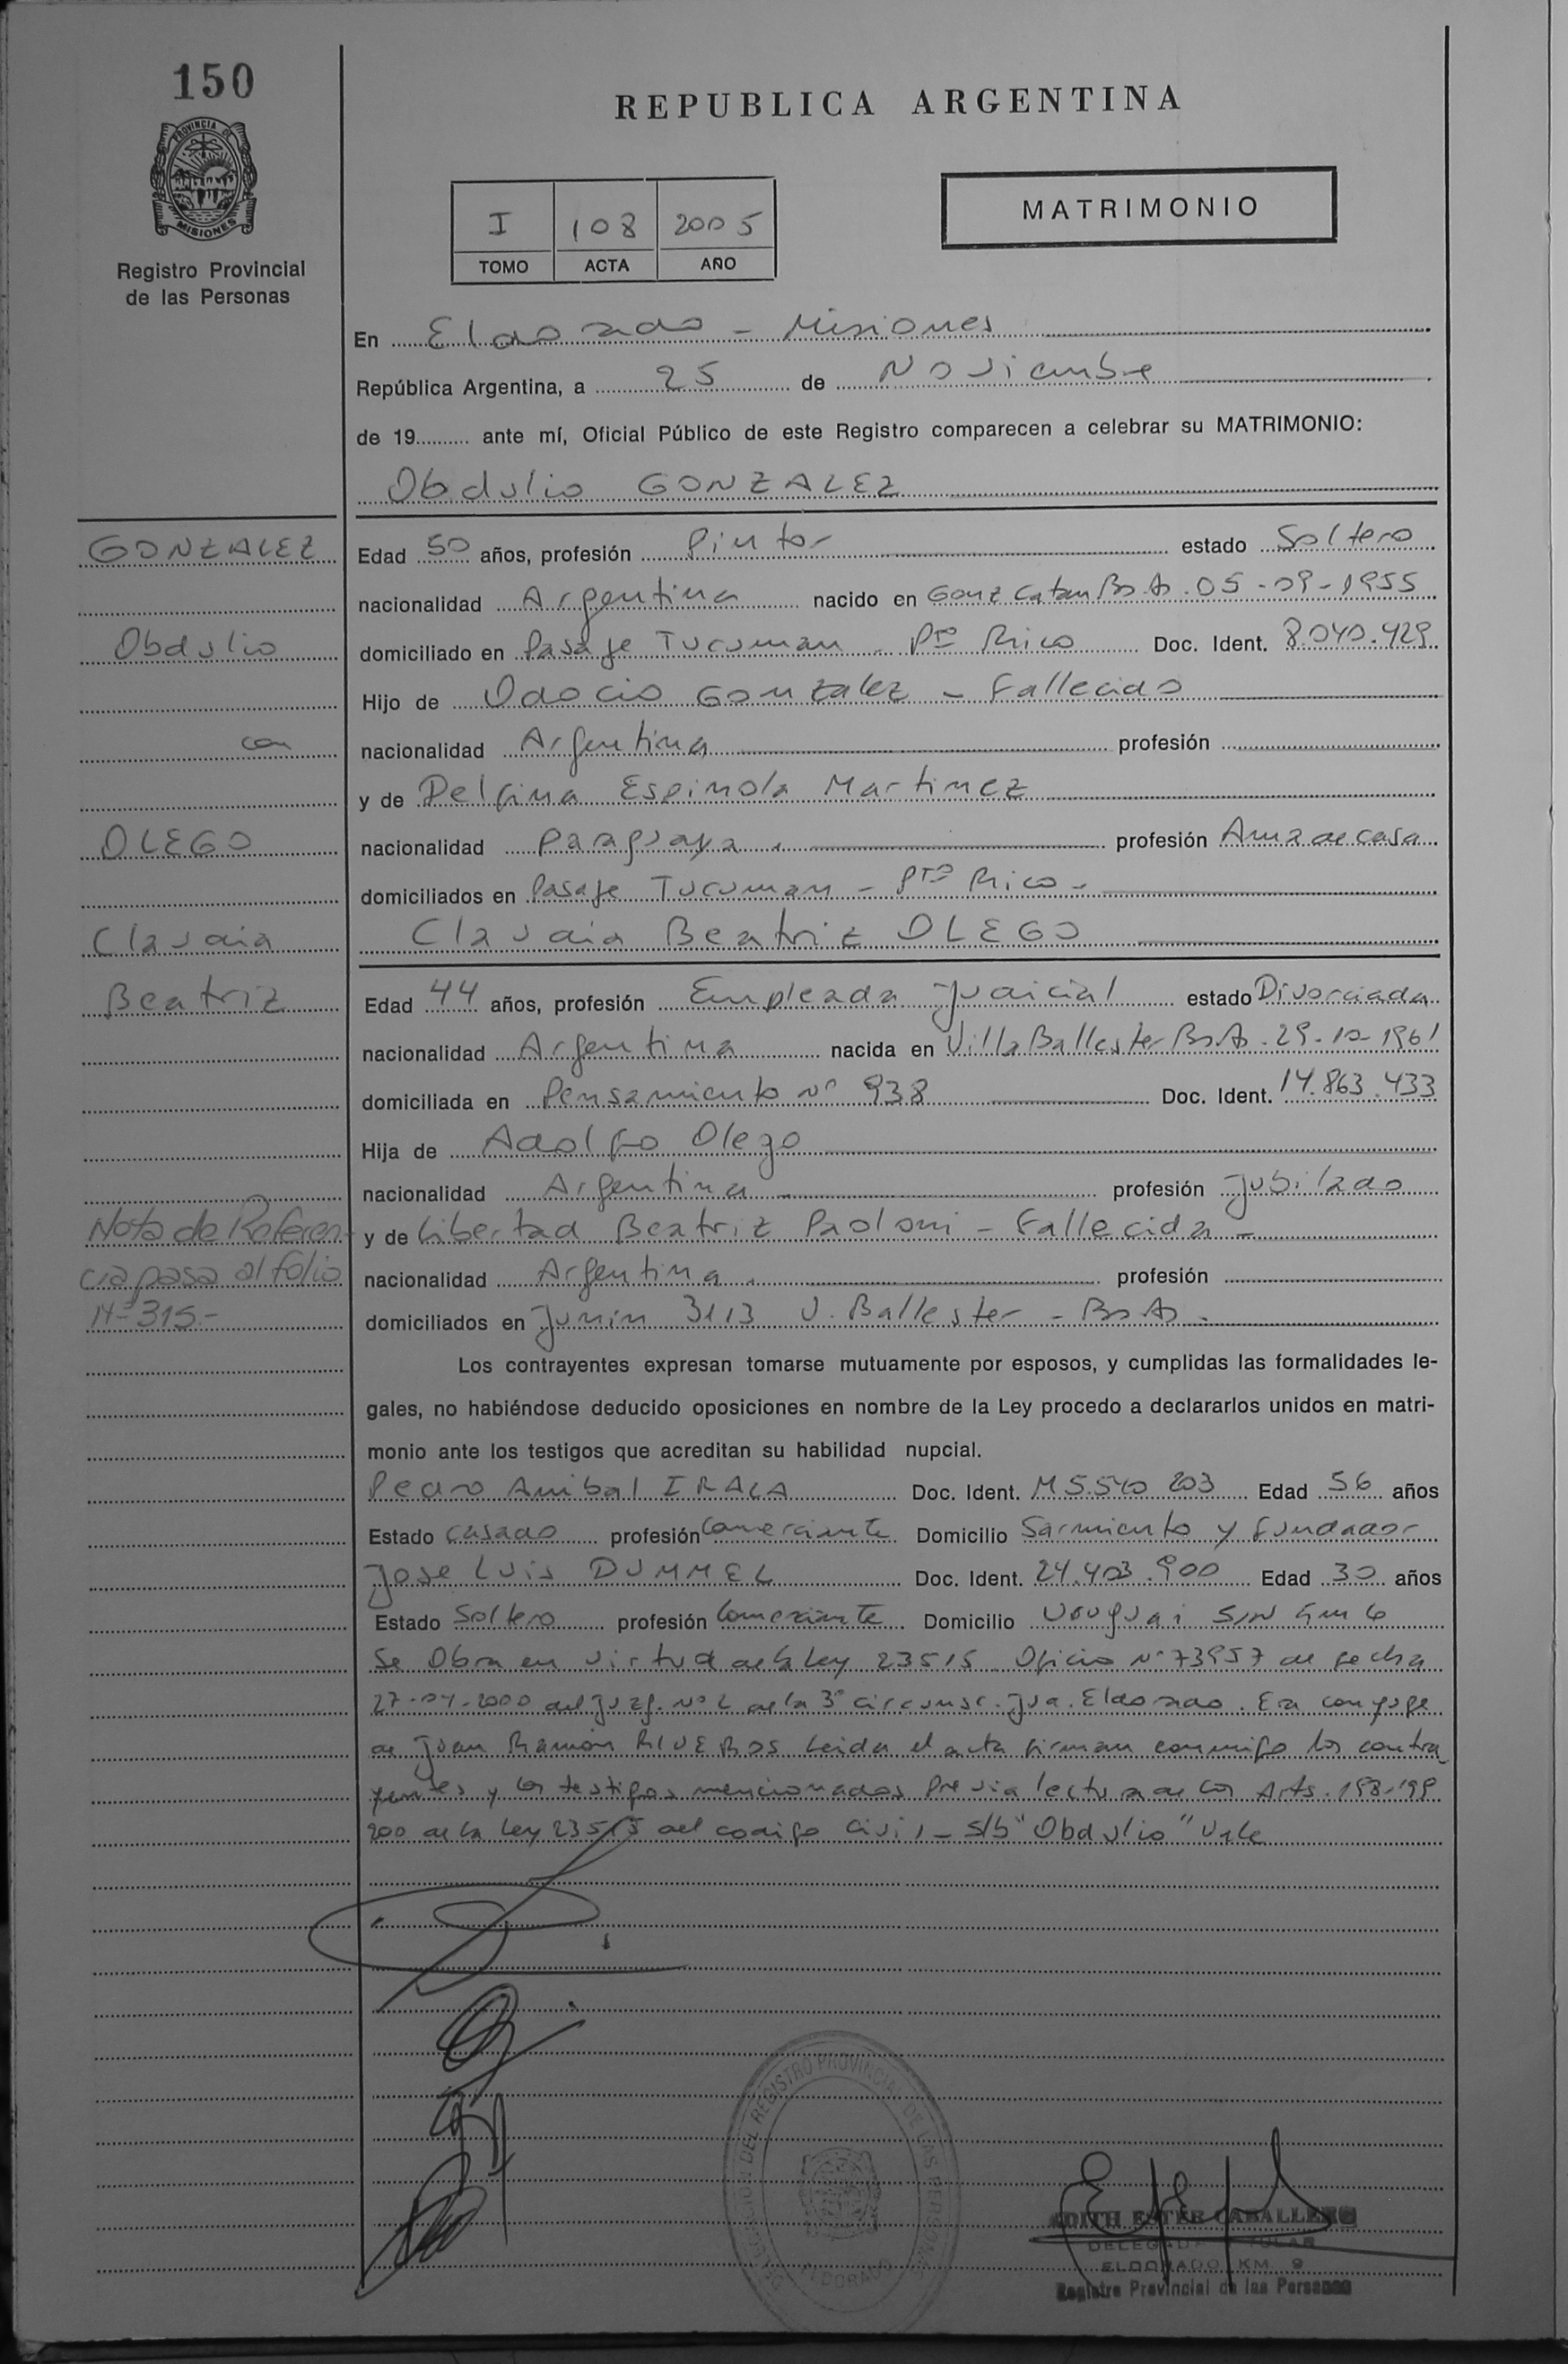 150
PROVINCIA DE
MISIONES
Registro Provincial
de las Personas
REPUBLICA ARGENTINA
I 108 2005
TOMO ACTA AÑO
MATRIMONIO
En Eldorado - Misiones
República Argentina, a 25 de Noviembre
de 19 ante mí, Oficial Público de este Registro comparecen a celebrar su MATRIMONIO:
Obdulio GONZALEZ
GONZALEZ
Edad 50 años, profesión Pintor estado Soltero
nacionalidad Argentina nacido en Gonz Catan Bs.As. 05-09-1955
Obdulio
domiciliado en Pasaje Tucuman - Pto Rico Doc. Ident. 8.040.429
Hijo de Odocio Gonzalez - Fallecido
con
nacionalidad Argentina profesión
y de Delfina Espinola Martinez
OLEGO
nacionalidad Paraguaya. profesión Ama de casa
domiciliados en Pasaje Tucuman - Pto Rico -
Claudia
Claudia Beatriz OLEGO
Beatriz
Edad 44 años, profesión Empleada Judicial estado Divorciada
nacionalidad Argentina nacida en Villa Ballester Bs.As. 29-10-1961
domiciliada en Pensamiento Nº 938 Doc. Ident. 14.863.433
Hija de Adolfo Olego
nacionalidad Argentina profesión Jubilado
Nota de Referen-
y de Libertad Beatriz Paoloni - Fallecida -
cia pasa al folio
nacionalidad Argentina. profesión
Nº 315.-
domiciliados en Junin 3113 V. Ballester - Bs As -
Los contrayentes expresan tomarse mutuamente por esposos, y cumplidas las formalidades le-
gales, no habiéndose deducido oposiciones en nombre de la Ley procedo a declararlos unidos en matri-
monio ante los testigos que acreditan su habilidad nupcial.
Pedro Anibal IRALA Doc. Ident. M 5.540 203 Edad 56 años
Estado casado profesión Comerciante Domicilio Sarmiento y Fundador
Jose Luis DUMMEL Doc. Ident. 24.403.900 Edad 30 años
Estado Soltero profesión Comerciante Domicilio Uruguai S/N
Se Obra en virtud de la Ley 23515 Oficio Nº 73957 de fecha
27-04-2000 del Juzg. Nº 2 de la 3º circunsc. Jud. Eldorado. Era conyuge
de Juan Ramón RIVEROS Leida el acta firman conmigo los contra
yentes y los testigos mencionados Previa lectura de los Arts. 198-199
200 de la Ley 23515 del codigo Civil - S/b "Obdulio" Vale
DELEGACION DEL REGISTRO PROVINCIAL DE LAS PERSONAS
ELDORADO
EDITH ESTER CABALLERO
DELEGADA TITULAR
ELDORADO KM. 9
Registro Provincial de las Personas